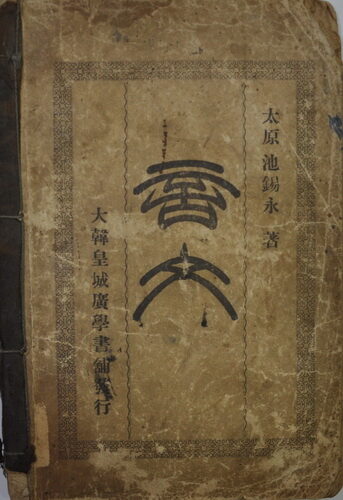 太原池錫永 著
言文
大韓皇城廣學書舖發行